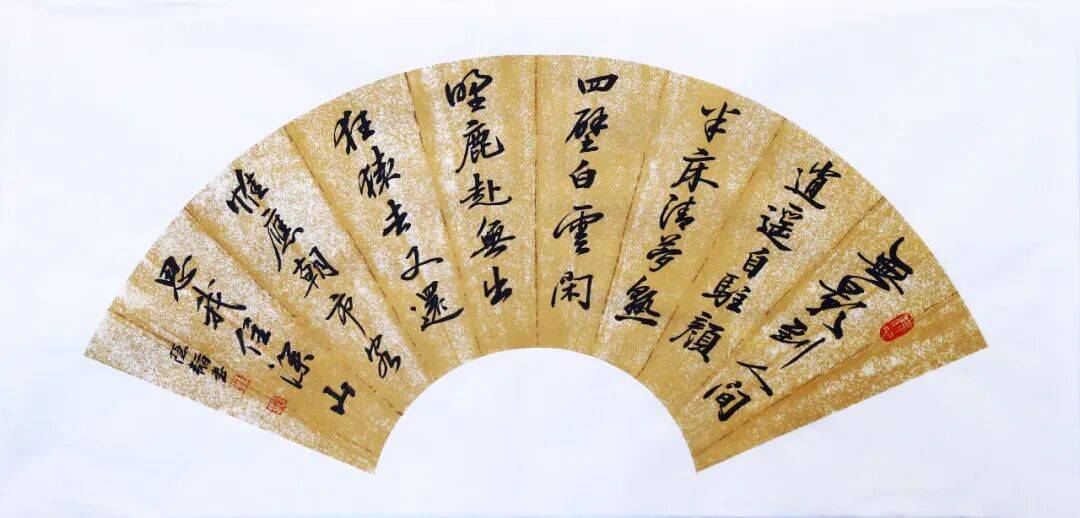 無到人間
逍遥自駐顏
半床清夢熟
四壁白雲閑
野鹿赴無出
狂猿去又還
惟應朝市客
思我住深山